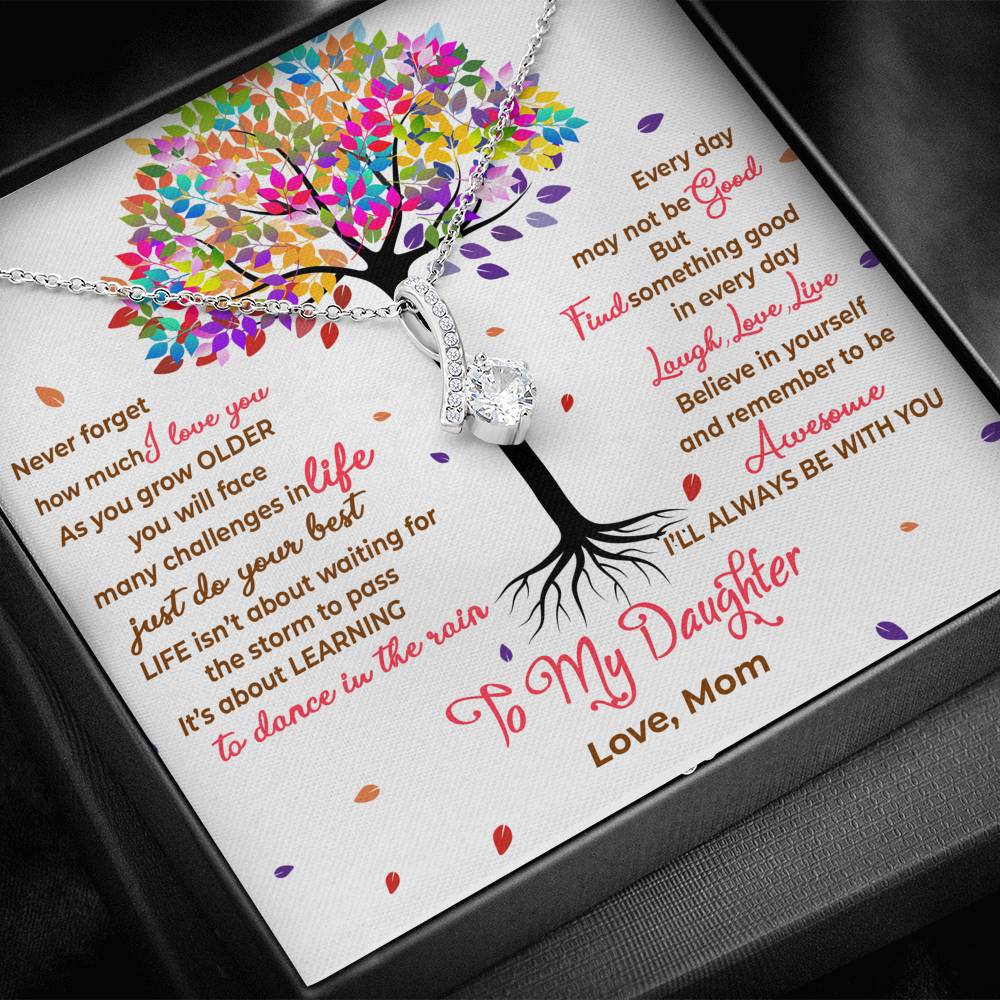 Never forget
how much I love you
As you grow OLDER
you will face
many challenges in life
just do your best
LIFE isn't about waiting for
the storm to pass
It's about LEARNING
to dance in the rain
Every day
may not be Good
But
Find something good
in every day
Laugh, Love, Live
Believe in yourself
and remember to be
Awesome
I'LL ALWAYS BE WITH YOU
To My Daughter
Love, Mom